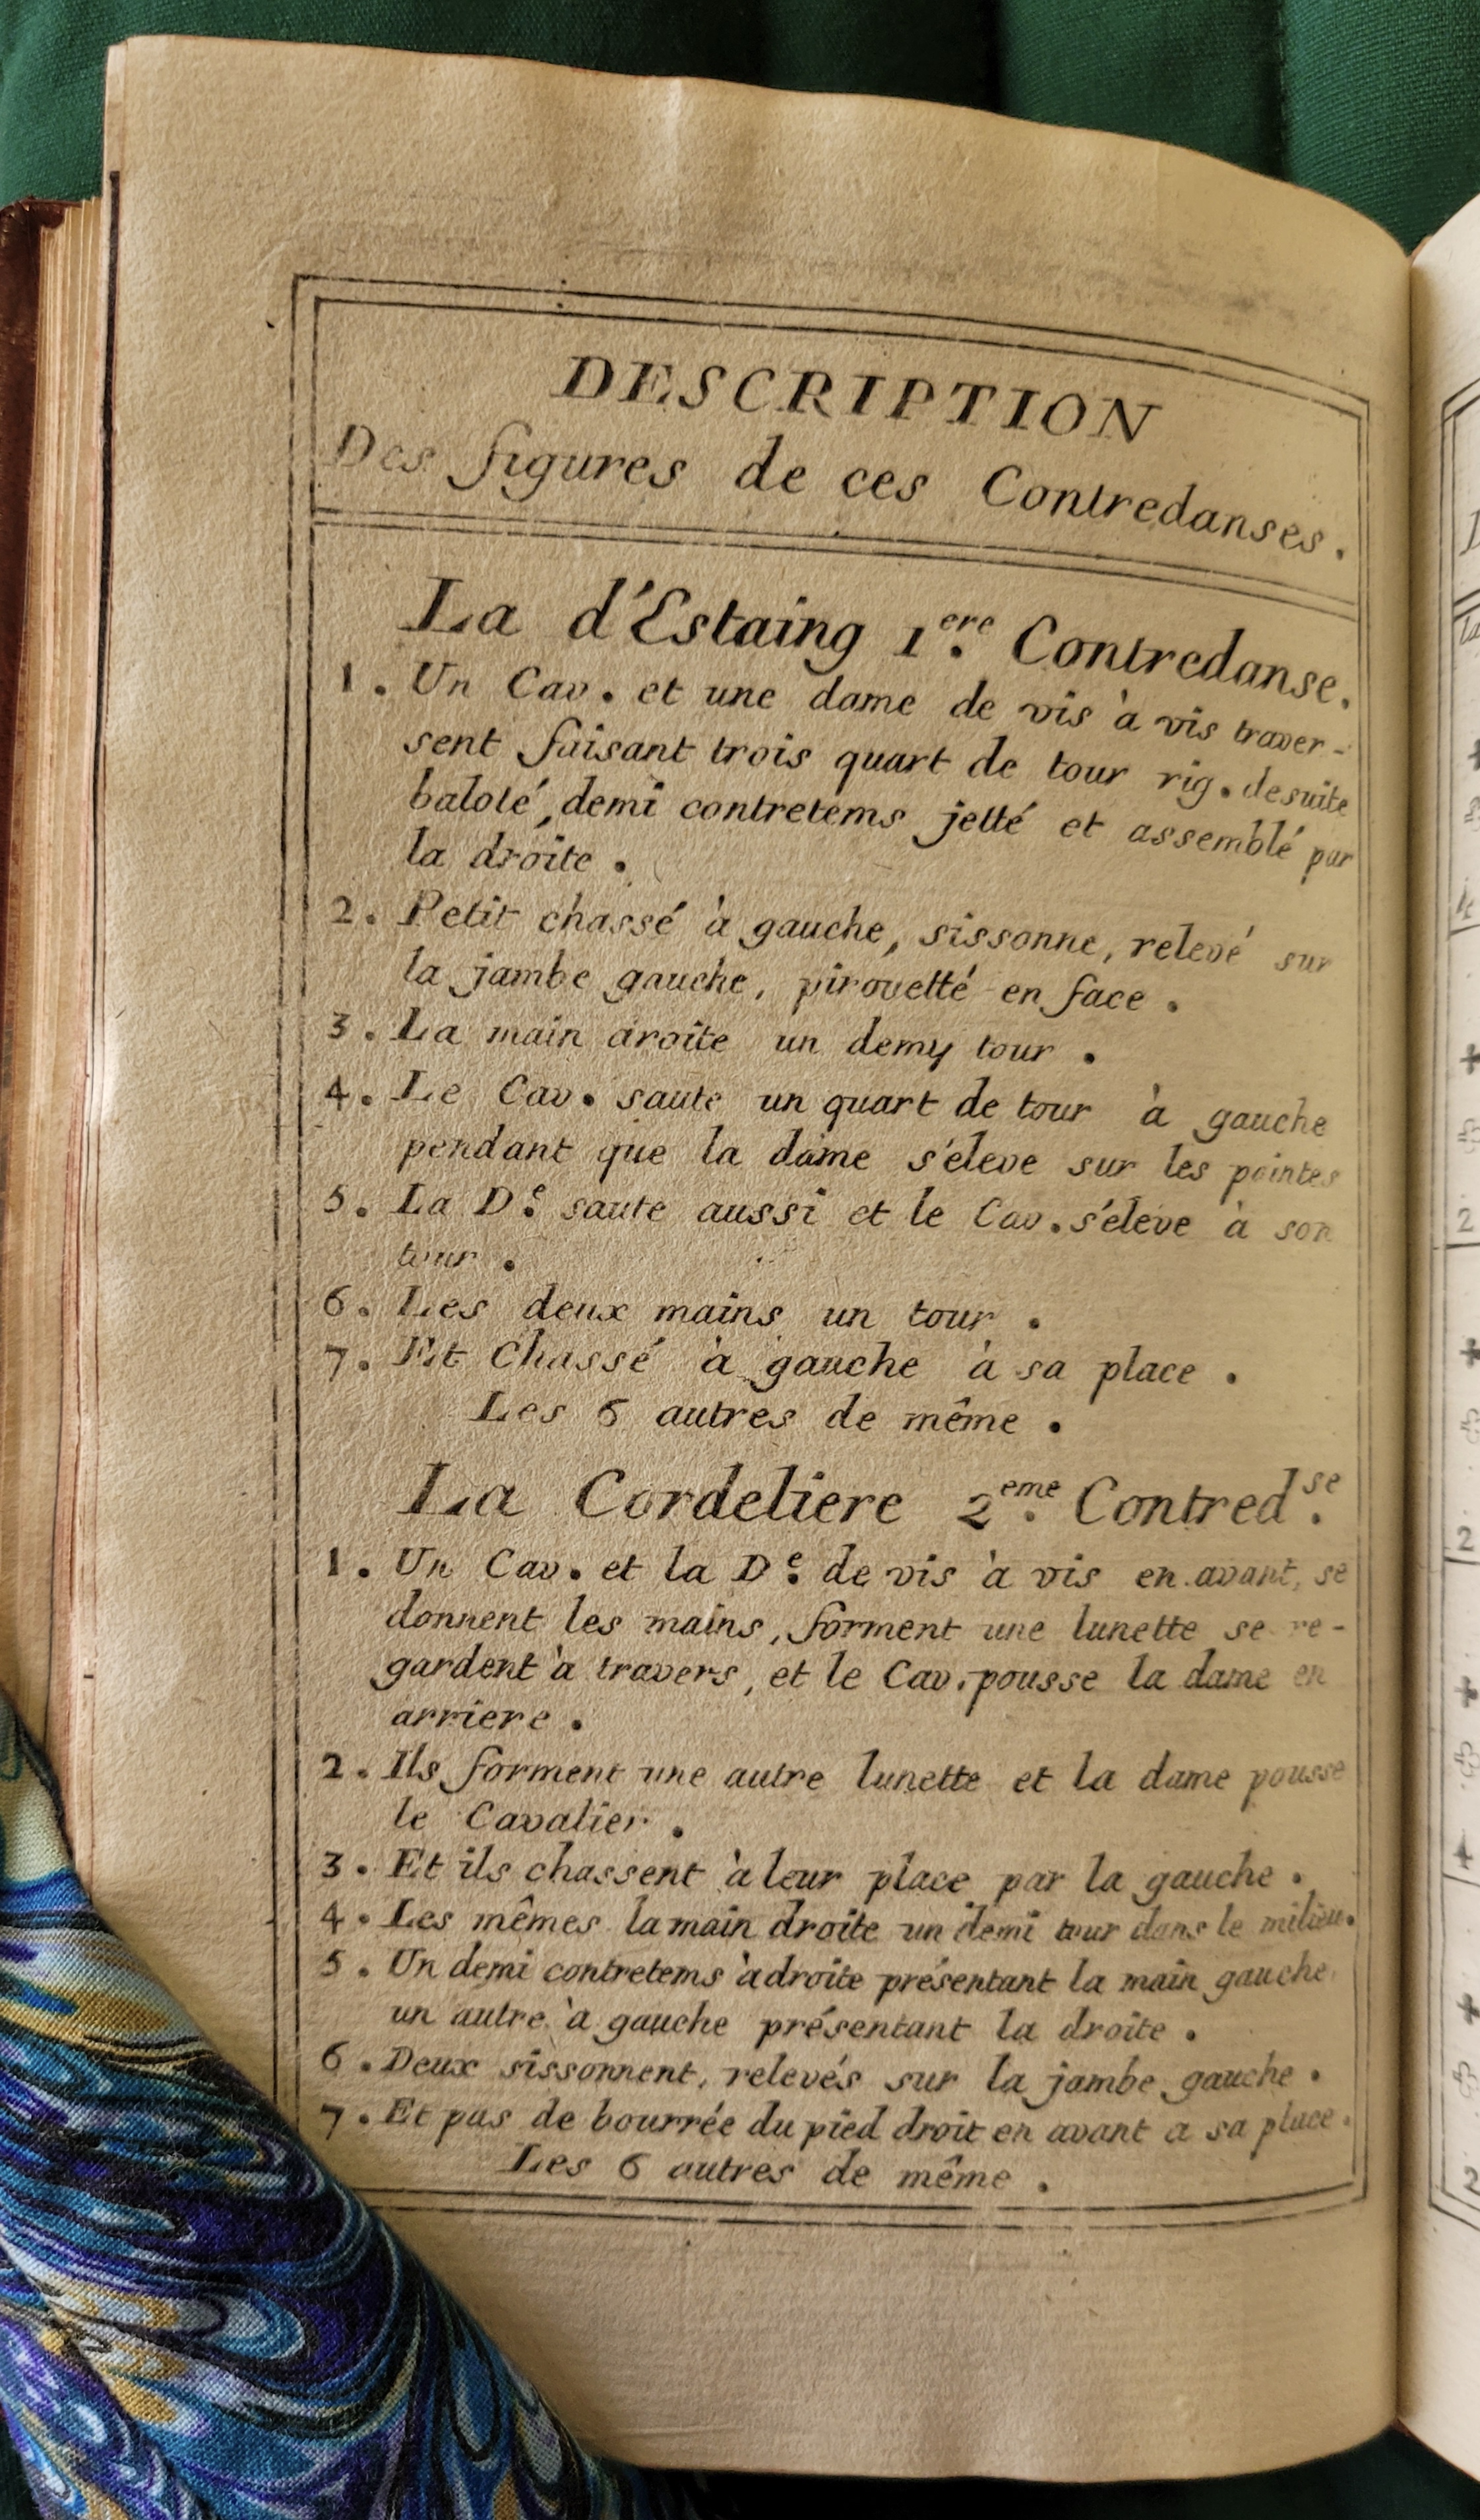 DESCRIPTION
Des figures de ces Contredanses.
La d'Estaing 1.ere Contredanse.
1. Un Cav. et une dame de vis à vis traver-
sent faisant trois quart de tour rig. de suite
baloté, demi contretems jetté et assemblé par
la droite.
2. Petit chassé à gauche, sissonne, relevé sur
la jambe gauche, pirouetté en face.
3. La main droite un demy tour.
4. Le Cav. saute un quart de tour à gauche
pendant que la dame s'éleve sur les pointes
5. La D.e saute aussi et le Cav. s'éleve à son
tour.
6. Les deux mains un tour.
7. Et Chassé à gauche à sa place.
Les 6 autres de même.
La Cordeliere 2.eme Contred.se
1. Un Cav. et la D.e de vis à vis en avant, se
donnent les mains, forment une lunette se re-
gardent à travers, et le Cav. pousse la dame en
arriere.
2. Ils forment une autre lunette et la dame pousse
le Cavalier.
3. Et ils chassent à leur place par la gauche.
4. Les mêmes la main droite un demi tour dans le milieu.
5. Un demi contretems à droite présentant la main gauche
un autre à gauche présentant la droite.
6. Deux sissonnent, relevés sur la jambe gauche.
7. Et pas de bourrée du pied droit en avant a sa place.
Les 6 autres de même.